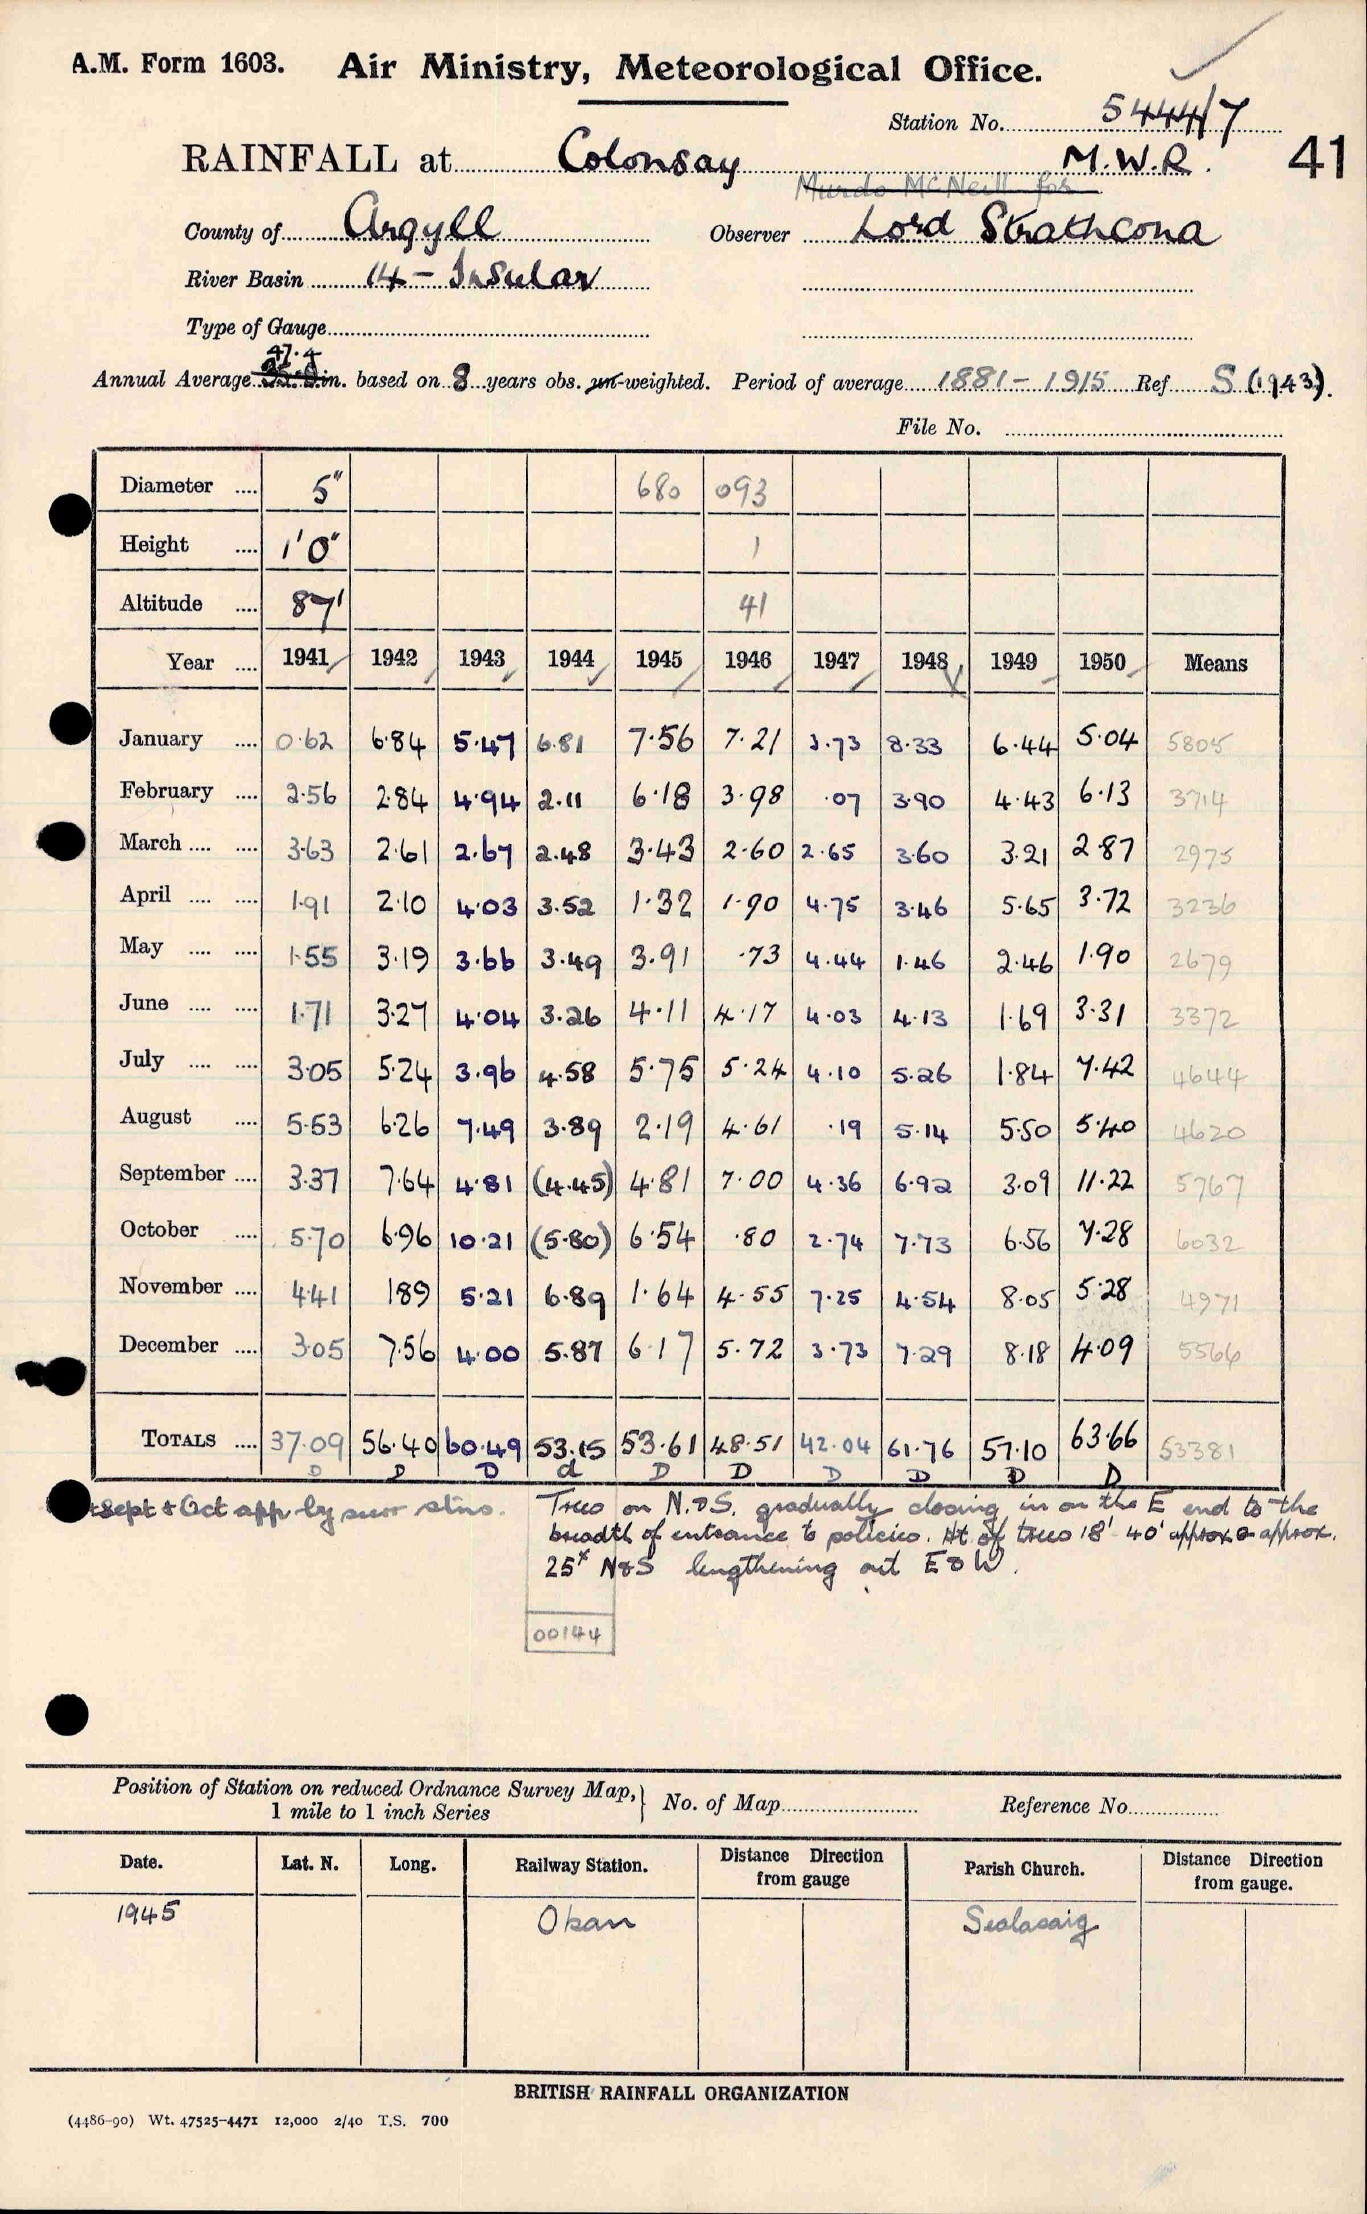 A.M. Form 1603. Air Ministry, Meteorological Office.
Station No. 5444/7
RAINFALL at Colonsay M.W.R. 41
Murdo McNeill for
County of Argyll Observer Lord Strathcona
River Basin 14 - Insular
Type of Gauge
47.4
Annual Average in. based on 8 years obs. un-weighted. Period of average 1881 - 1915 Ref S (1943).
File No.
Diameter .... 5" 680 093
Height .... 1'0" 1
Altitude .... 87' 41
Year .... 1941 1942 1943 1944 1945 1946 1947 1948 1949 1950 Means
January .... 0.62 6.84 5.47 6.81 7.56 7.21 3.73 8.33 6.44 5.04 5805
February .... 2.56 2.84 4.94 2.11 6.18 3.98 .07 3.90 4.43 6.13 3714
March .... .... 3.63 2.61 2.67 2.48 3.43 2.60 2.65 3.60 3.21 2.87 2975
April .... .... 1.91 2.10 4.03 3.52 1.32 1.90 4.75 3.46 5.65 3.72 3236
May .... .... 1.55 3.19 3.66 3.49 3.91 .73 4.44 1.46 2.46 1.90 2679
June .... .... 1.71 3.27 4.04 3.26 4.11 4.17 4.03 4.13 1.69 3.31 3372
July .... .... 3.05 5.24 3.96 4.58 5.75 5.24 4.10 5.26 1.84 7.42 4644
August .... 5.53 6.26 7.49 3.89 2.19 4.61 .19 5.14 5.50 5.40 4620
September .... 3.37 7.64 4.81 (4.45) 4.81 7.00 4.36 6.92 3.09 11.22 5767
October .... 5.70 6.96 10.21 (5.80) 6.54 .80 2.74 7.73 6.56 7.28 6032
November .... 4.41 1.89 5.21 6.89 1.64 4.55 7.25 4.54 8.05 5.28 4971
December .... 3.05 7.56 4.00 5.87 6.17 5.72 3.73 7.29 8.18 4.09 5566
TOTALS .... 37.09 56.40 60.49 53.15 53.61 48.51 42.04 61.76 57.10 63.66 53381
D D D d D D D D D D
Sept & Oct app by surr stns. Trees on N. & S. gradually closing in on the E end to the
breadth of entrance to policies. Ht of trees 18' 40' approx approx.
25x N&S lengthening out E & W.
00144
Position of Station on reduced Ordnance Survey Map, 1 mile to 1 inch Series } No. of Map Reference No.
Date. Lat. N. Long. Railway Station. Distance Direction from gauge Parish Church. Distance Direction from gauge.
1945 Oban Scalasaig
BRITISH RAINFALL ORGANIZATION
(4486-90) Wt. 47525-4471 12,000 2/40 T.S. 700